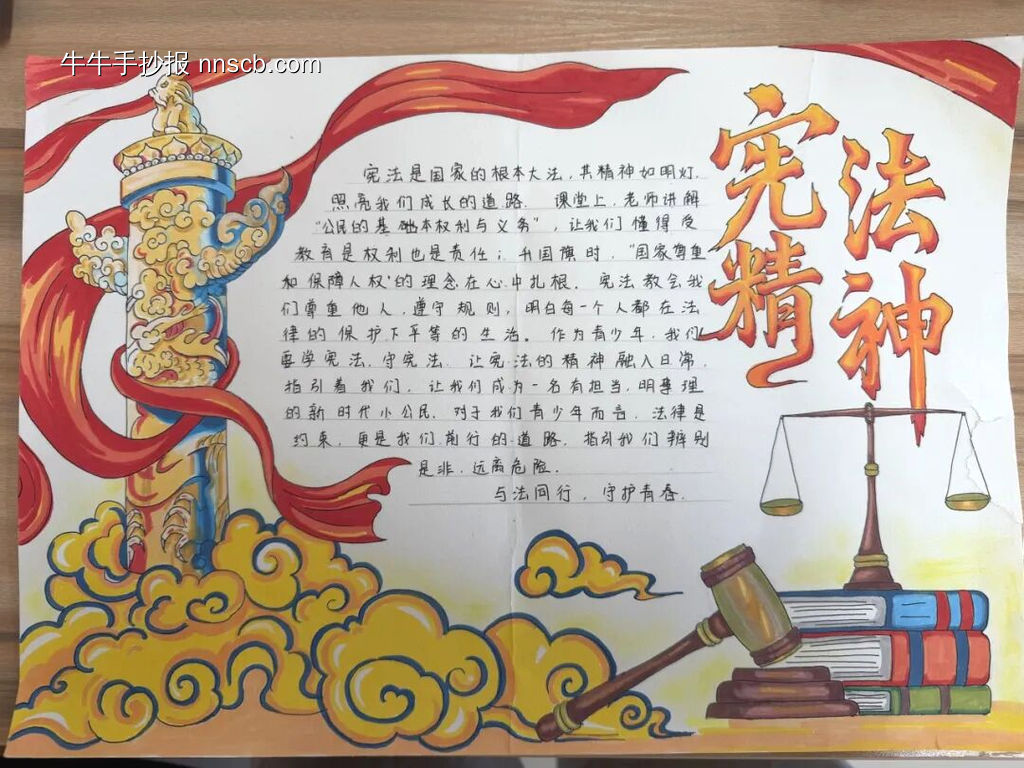 牛牛手抄报 nnscb.com
宪法
精神
宪法是国家的根本大法，其精神如明灯，
照亮我们成长的道路． 课堂上，老师讲解
“公民的基础本权利与义务”，让我们懂得受
教育是权利也是责任；升国旗时，“国家尊重
和保障人权”的理念在心中扎根． 宪法教会我
们尊重他人，遵守规则，明白每一个人都在法
律的保护下平等的生活。作为青少年，我们
要学宪法，守宪法，让宪法的精神融入日常，
指引着我们，让我们成为一名有担当，明事理
的新时代小公民．对于我们青少年而言，法律是
约束，更是我们前行的道路，指引我们辨别
是非，远离危险．
与法同行，守护青春．